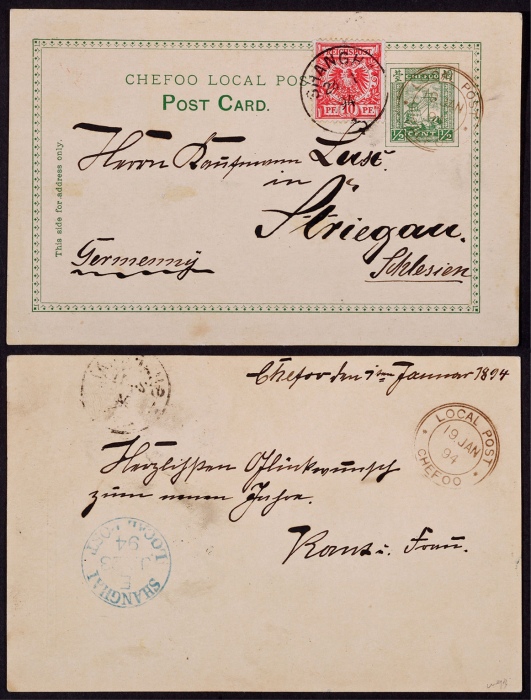 CHEFOO LOCAL POST
POST CARD.
This side for address only.
REICHSPOST
10 PF 10
SHANGH
½ CENT ½
POST
JAN
Herrn Kaufmann Lust.
in
Striegau.
Schlesien
Germenny
Chefoo den 1ten Januar 1894
LOCAL POST
19 JAN
94
CHEFOO
Herzlichsten Glückwunsch
zum neuen Jahre.
u. Frau.
LOCAL POST
94
SHANGHAI